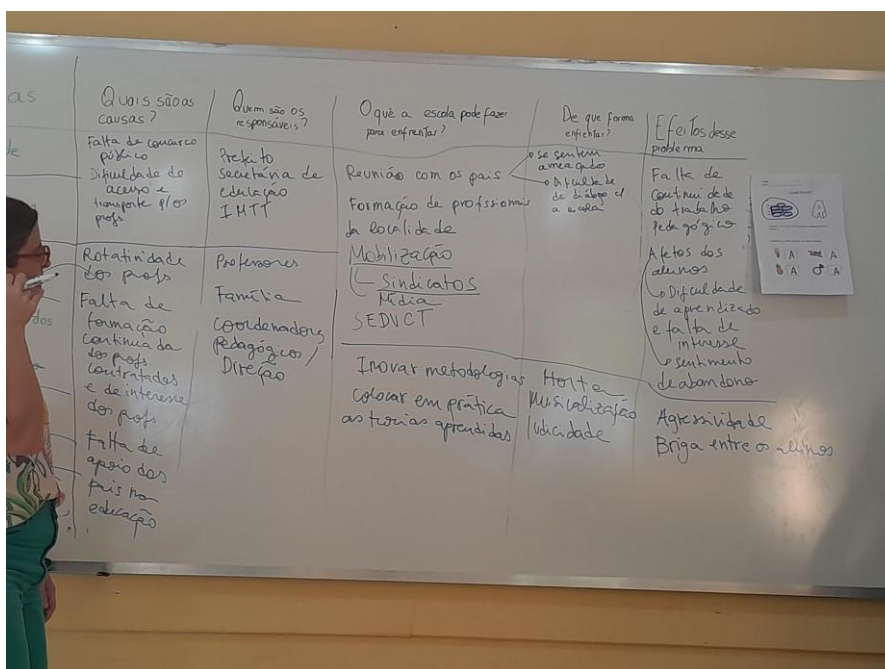 as
de
dos
Quais são as
causas?
Falta de concurso
público
Dificuldade de
acesso e
transporte p/os
profs
Rotatividade
dos profs
Falta de
formação
continuada
dos profs.
contratados
e de interesse
dos profs
Falta de
apoio dos
pais na
educação
Quem são os
responsáveis?
Prefeito
Secretária de
educação
IMTT
Professores
Família
Coordenadores
pedagógicos
Direção
O que a escola pode fazer
para enfrentar?
Reunião com os pais
Formação de profissionais
da localidade
Mobilização
Sindicatos
Mídia
SEDUCT
Inovar metodologias
Colocar em prática
as teorias aprendidas
De que forma
enfrentar?
se sentem
ameaçado
Dificuldade
de diálogo c/
a escola
Horta
Musicalização
ludicidade
Efeitos desse
problema
Falta de
continuidade
do trabalho
pedagógico
Afetos dos
alunos
Dificuldade
de aprendizado
e falta de
interesse
sentimento
de abandono
Agressividade
Briga entre os alunos
A A
A A